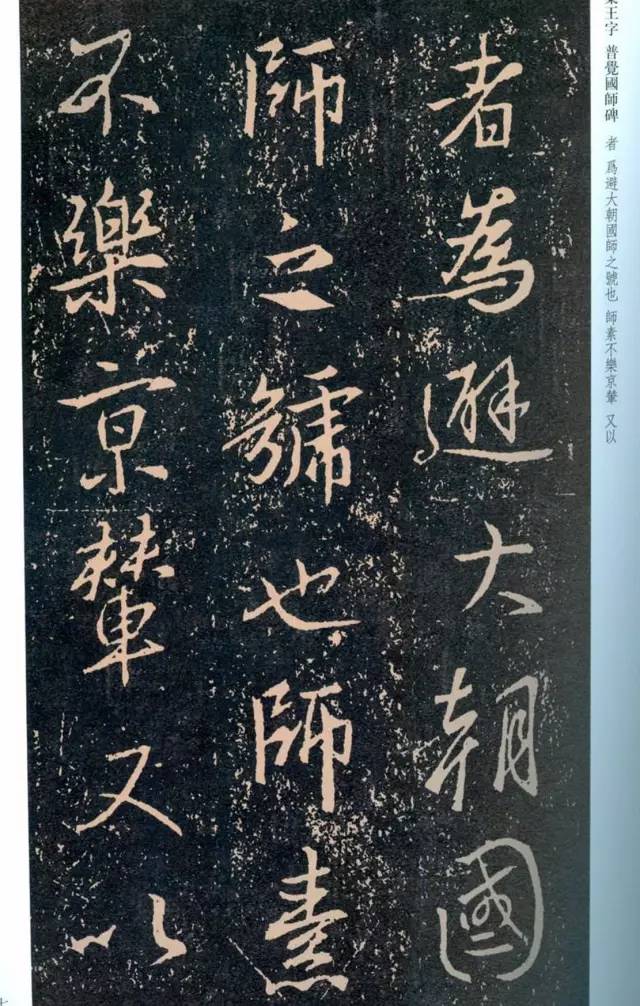 者為避大朝國
師之號也師素
不樂京輦又以
王字 普覺國師碑
者 爲避大朝國師之號也 師素不樂京輦 又以